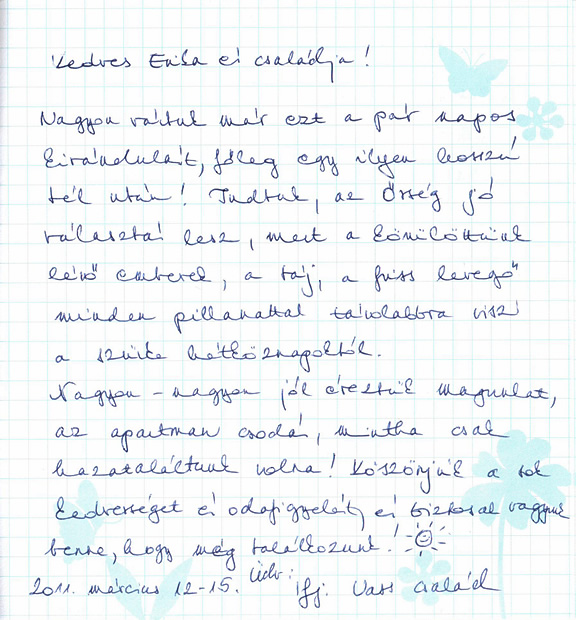 Kedves Erika és családja!
Nagyon vártuk már ezt a pár napos
kirándulást, főleg egy ilyen hosszú
tél után! Tudtuk, az Őrség jó
választás lesz, mert a körülöttünk
lévő emberek, a táj, a friss levegő
minden pillanattal távolabbra visz
a szürke hétköznapoktól.
Nagyon-nagyon jól éreztük magunkat,
az apartman csodás, mintha csak
hazataláltunk volna! Köszönjük a sok
kedvességet és odafigyelést, és biztosak vagyunk
benne, hogy még találkozunk!
2011. március 12-15. Üdv: Ifj. Vass család